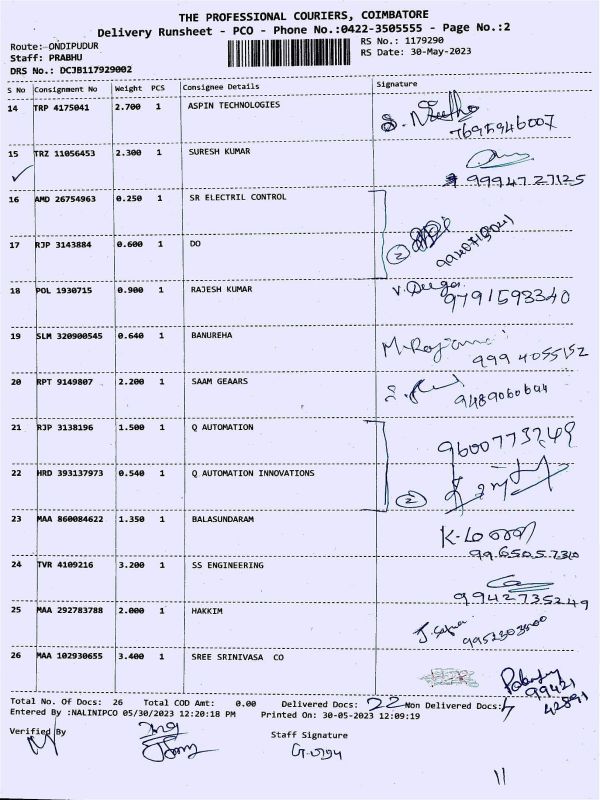 THE PROFESSIONAL COURIERS, COIMBATORE
Delivery Runsheet - PCO - Phone No.:0422-3505555 - Page No.:2
Route: ONDIPUDUR RS No.: 1179290
Staff: PRABHU RS Date: 30-May-2023
DRS No.: DCJB117929002
S No Consignment No Weight PCS Consignee Details Signature
14 TRP 4175041 2.700 1 ASPIN TECHNOLOGIES
7695946007
15 TRZ 11056453 2.300 1 SURESH KUMAR
99947 27125
16 AMD 26754963 0.250 1 SR ELECTRIL CONTROL
17 RJP 3143884 0.600 1 DO
2
18 POL 1930715 0.900 1 RAJESH KUMAR
9791593340
19 SLM 320900545 0.640 1 BANUREHA
999 4055152
20 RPT 9149807 2.200 1 SAAM GEAARS
21 RJP 3138196 1.500 1 Q AUTOMATION
9600773249
22 HRD 393137973 0.540 1 Q AUTOMATION INNOVATIONS
2
23 MAA 860084622 1.350 1 BALASUNDARAM
24 TVR 4109216 3.200 1 SS ENGINEERING
9942735249
25 MAA 292783788 2.000 1 HAKKIM
26 MAA 102930655 3.400 1 SREE SRINIVASA CO
99421
42891
Total No. Of Docs: 26 Total COD Amt: 0.00 Delivered Docs: 22 Non Delivered Docs:
Entered By :NALINIPCO 05/30/2023 12:20:18 PM Printed On: 30-05-2023 12:09:19
Verified By Staff Signature
11